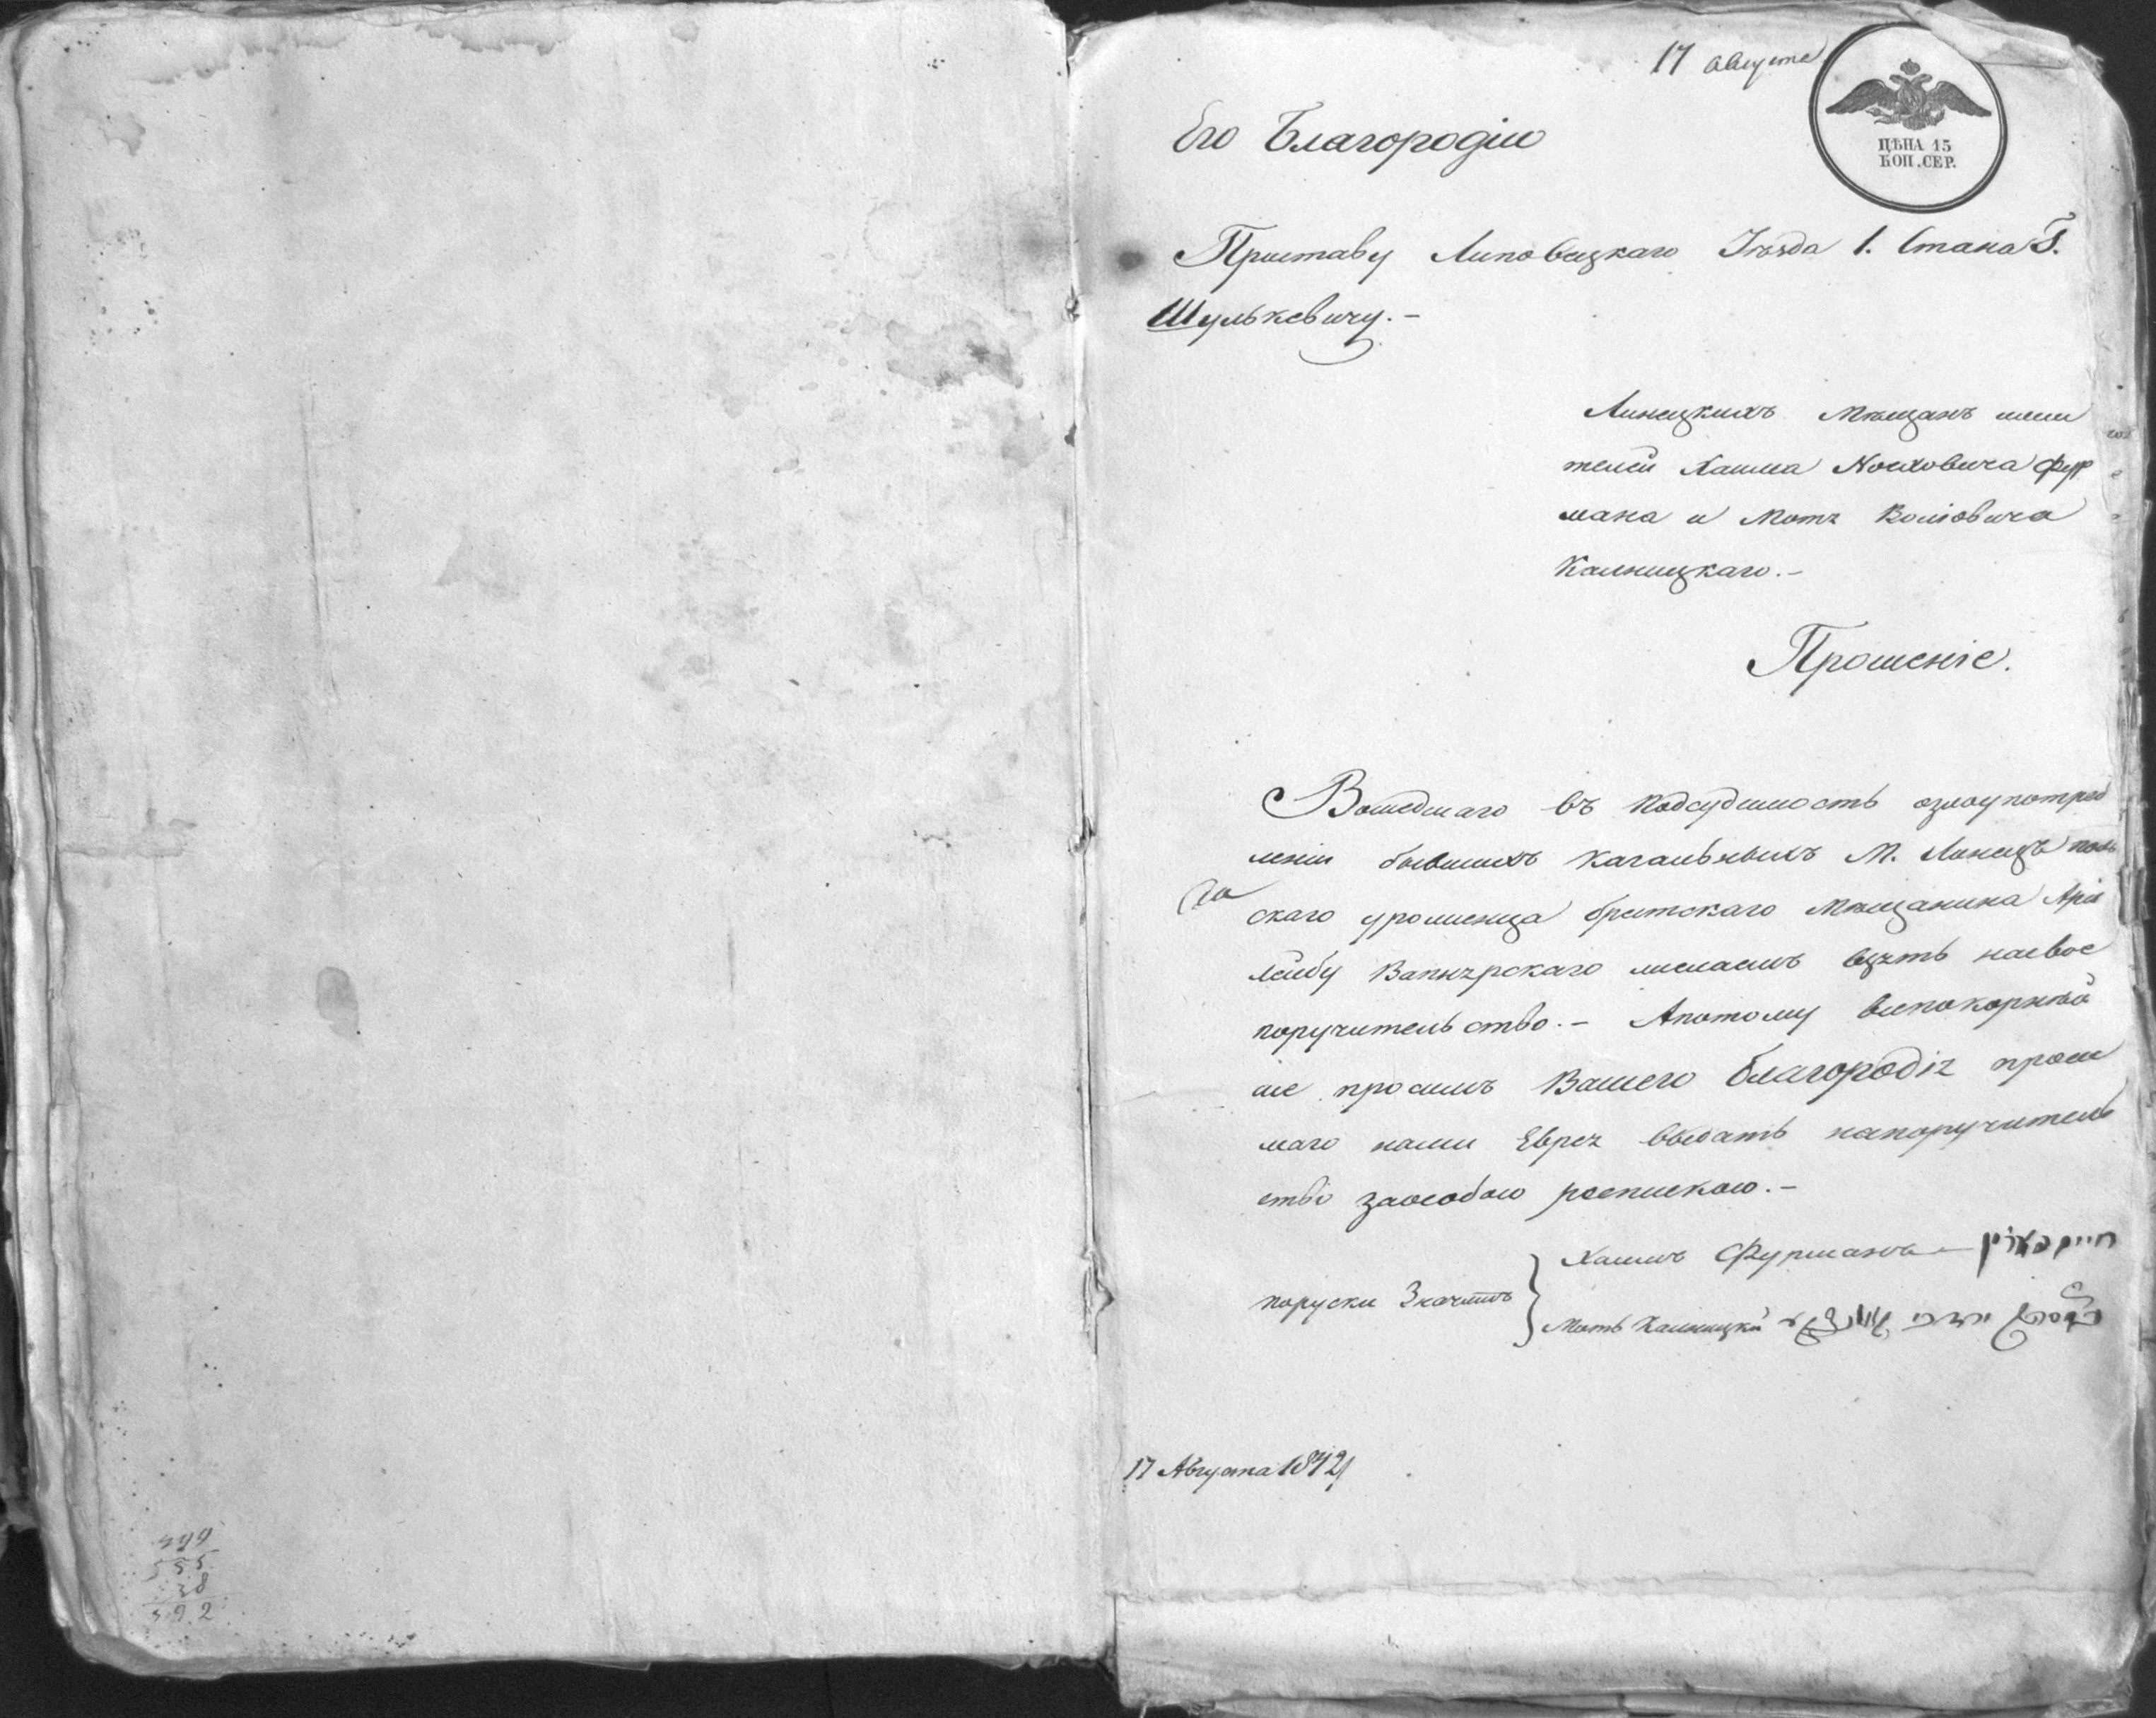 17 августа
ЦѢНА 15
КОП. СЕР.
Его Благородію
Приставу Липовецкаго Уѣзда 1. Стана Г.
Шулькевичу. –
Линецкихъ Мѣщанъ жи
телей Хаима Фур
мана и Мотя Волковича
Калницкаго. –
Прошеніе.
Вошедшаго въ подсудимость озлоупотреб
леніи бывшихъ кагальныхъ М. Линецъ поль
скаго уроженца мѣщанина Арія
Лейбу Вапнярскаго желаемъ взять насвое
поручительство. – Апотому всепокорнѣй
ше просимъ Вашего благородія проси
маго нами Еврея выдать напоручитель
ство заособою роспискою. –
Хаимъ Фурманъ –
поруски Значитъ
Моть Калницкій
17 Августа 1842
599
555
38
592